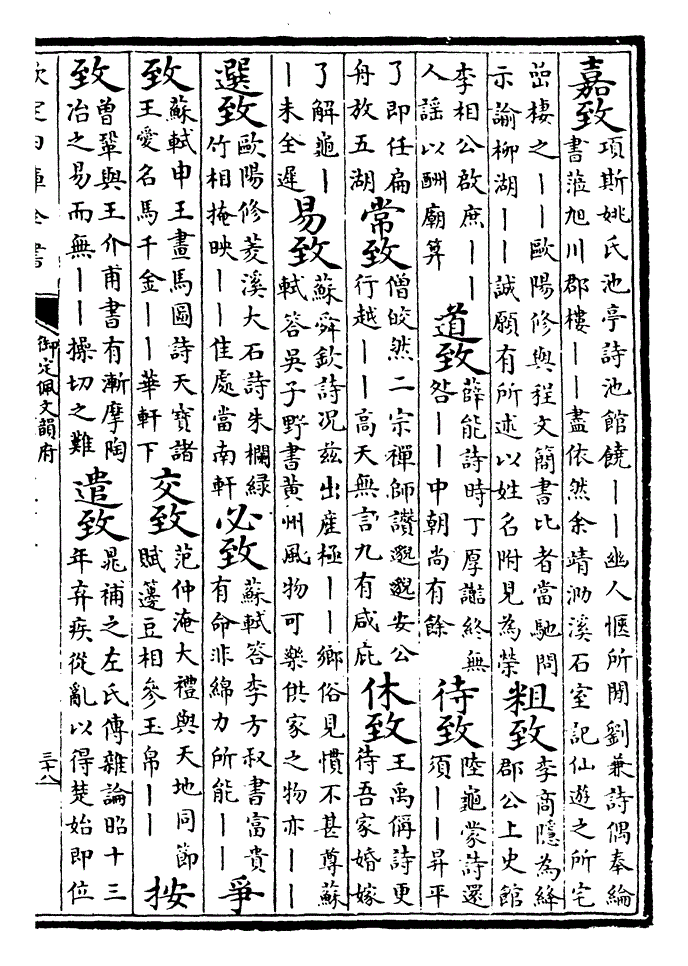 嘉致
項斯姚氏池亭詩池館饒——幽人愜所聞劉兼詩偶奉綸
書蒞旭川郡樓——盡依然余靖泐溪石室記仙遊之所宅
茁棲之——歐陽修與程文簡書比者當馳問
示諭柳湖——誠願有所述以姓名附見為榮
粗致
李商隱為絳
郡公上史館
李相公啟庶——
人謡以酬廟筭
道致
薛能詩時丁厚讟終無
咎——中朝尚有餘
待致
陸龜蒙詩還
須——昇平
了即任扁
舟放五湖
常致
僧皎然二宗禪師讚邈邈安公
行越——高天無言九有咸庇
休致
王禹偁詩更
待吾家婚嫁
了解龜—
—未全遲
易致
蘇舜欽詩况兹出產極——鄉俗見慣不甚尊蘇
軾答吳子野書黃州風物可樂供家之物亦——
選致
歐陽修菱溪大石詩朱欄緑
竹相掩映——佳處當南軒
必致
蘇軾答李方叔書富貴
有命非綿力所能——
爭
致
蘇軾申王畫馬圖詩天寶諸
王愛名馬千金——華軒下
交致
范仲淹大禮與天地同節
賦籩豆相參玉帛——
按
致
曾鞏與王介甫書有漸摩陶
冶之易而無——操切之難
遣致
晁補之左氏傳雜論昭十三
年弃疾從亂以得楚始即位
欽定四庫全書
御定佩文韻府
三十八